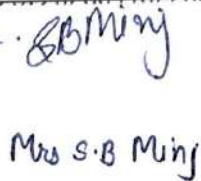 SB Minj
Mrs S.B Minj